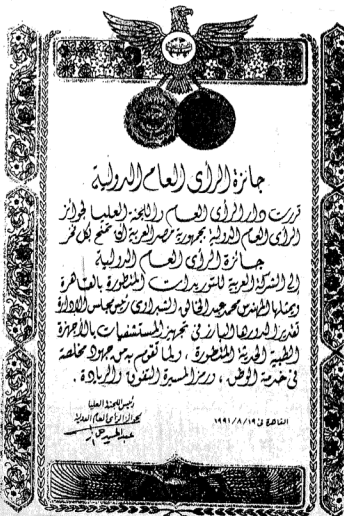 جائزة الرأى العام الدولية
قررت دار الرأى العام واللجنة العليا لجوائز
الرأى العام الدولية بجمهورية مصر العربية أن تمنح بكل فخر
جائزة الرأى العام الدولية
إلى الشركة العربية للتوريدات المتطورة بالقاهرة
ويمثلها المهندس محمد عبد الخالق الشبراوى رئيس مجلس الإدارة
تقديرا لدورها البارز فى تجهيز المستشفيات بالأجهزة
الطبية الحديثة المتطورة، ولما تقوم به من جهود مخلصة
فى خدمة الوطن، ورمز المسيرة التفوق والريادة.
رئيس اللجنة العليا
لجوائز الرأى العام الدولية
القاهرة فى ١٩٩١/٨/١٩